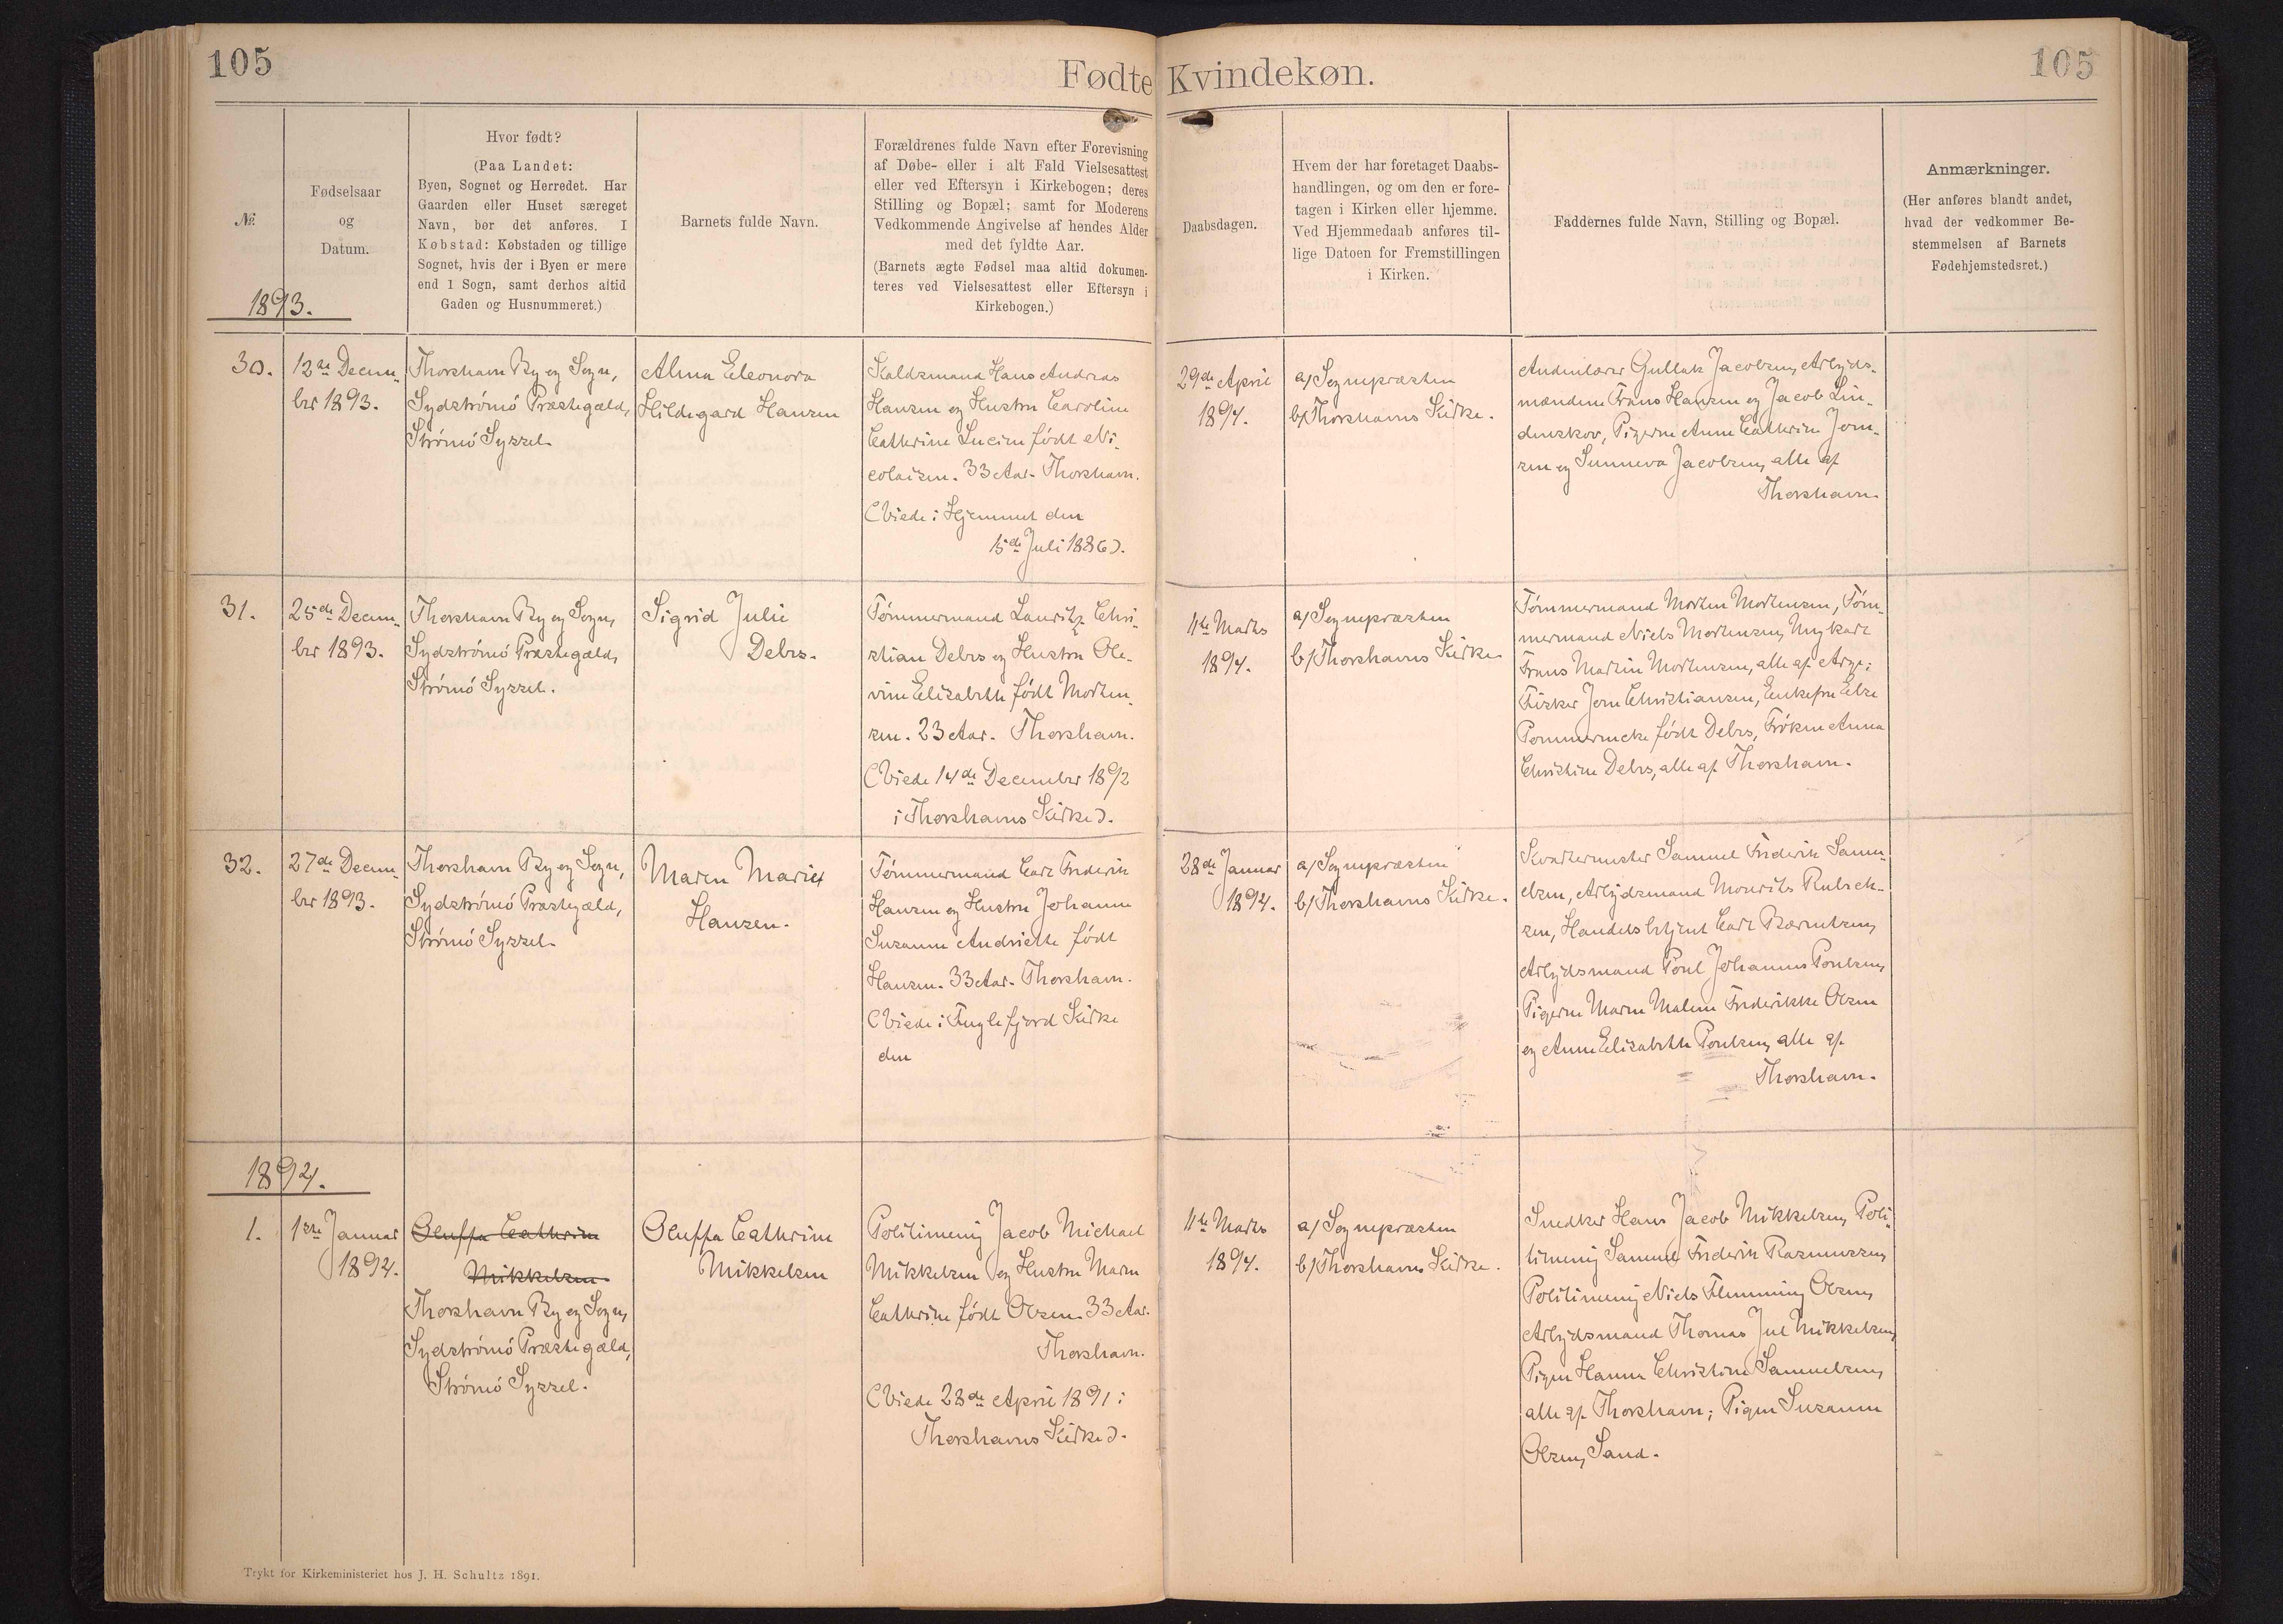 105
Fødte Kvindekøn.
105
№
Fødselsaar
og
Datum.
Hvor født?
(Paa Landet:
Byen, Sognet og Herredet. Har
Gaarden eller Huset særeget
Navn, bør det anføres. I
Købstad: Købstaden og tillige
Sognet, hvis der i Byen er mere
end 1 Sogn, samt derhos altid
Gaden og Husnummeret.)
Barnets fulde Navn.
Forældrenes fulde Navn efter Forevisning
af Døbe- eller i alt Fald Vielsesattest
eller ved Eftersyn i Kirkebogen; deres
Stilling og Bopæl; samt for Moderens
Vedkommende Angivelse af hendes Alder
med det fyldte Aar.
(Barnets ægte Fødsel maa altid dokumen-
teres ved Vielsesattest eller Eftersyn i
Kirkebogen.)
Daabsdagen.
Hvem der har foretaget Daabs-
handlingen, og om den er fore-
tagen i Kirken eller hjemme.
Ved Hjemmedaab anføres til-
lige Datoen for Fremstillingen
i Kirken.
Faddernes fulde Navn, Stilling og Bopæl.
Anmærkninger.
(Her anføres blandt andet,
hvad der vedkommer Be-
stemmelsen af Barnets
Fødehjemstedsret.)
1893.
30.
12te Decem-
ber 1893.
Thorshavn By og Sogn,
Sydstrømø Præstegæld,
Strømø Syssel.
Alma Eleonora
Hildegard Hansen
Skaldsmand Hans Andreas
Hansen og Hustru Caroline
Cathrine Lucine født Ni-
colaisen. 33 Aar. Thorshavn.
(Viede i Hjemmet den
15de Juli 1886).
29de April
1894.
a/ Sognepræsten
b/ Thorshavns Kirke.
Andenlærer Gullak Jacobsen, Arbejds-
mændene Frans Hansen og Jacob Lin-
denskov, Pigerne Anne Cathrine Joen-
sen og Sunneva Jacobsen, alle af
Thorshavn.
31.
25de Decem-
ber 1893.
Thorshavn By og Sogn,
Sydstrømø Præstegæld,
Strømø Syssel.
Sigrid Julie
Debes.
Tømmermand Lauritz Chri-
stian Debes og Hustru Ole-
vine Elisabeth født Morten-
sen. 23 Aar. Thorshavn.
(Viede 14de December 1892
i Thorshavns Kirke).
11te Marts
1894.
a/ Sognepræsten
b/ Thorshavns Kirke
Tømmermand Morten Mortensen, Tøm-
mermand Niels Mortensen, Ungkarl
Frans Martin Mortensen, alle af Arge;
Fisker Joen Christiansen, Enkefru Else
Pommerencke født Debes, Frøken Anna
Christine Debes, alle af Thorshavn.
32.
27de Decem-
ber 1893.
Thorshavn By og Sogn,
Sydstrømø Præstegæld,
Strømø Syssel.
Maren Marie
Hansen.
Tømmermand Carl Frederik
Hansen og Hustru Johanne
Susanne Andriette født
Hansen. 33 Aar. Thorshavn.
(Viede i Fuglefjord Kirke
den
28de Januar
1894.
a/ Sognepræsten
b/ Thorshavns Kirke.
Kvartermester Samuel Frederik Samu-
elsen, Arbejdsmand Mourits Rubek-
sen, Handelsbetjent Carl Bærentsen,
Arbejdsmand Poul Johannes Poulsen,
Pigerne Maren Malene Frederikke Olsen
og Anne Elisabeth Poulsen, alle af
Thorshavn.
1894.
1.
1ste Januar
1894.
Oluffa Cathrine
Mikkelsen
Thorshavn By og Sogn,
Sydstrømø Præstegæld,
Strømø Syssel.
Oluffa Cathrine
Mikkelsen
Politimenig Jacob Michael
Mikkelsen og Hustru Maren
Cathrine født Olsen. 33 Aar.
Thorshavn.
(Viede 28de April 1891 i
Thorshavns Kirke).
11te Marts
1894.
a/ Sognepræsten
b/ Thorshavns Kirke.
Snedker Hans Jacob Mikkelsen, Poli-
timenig Samuel Frederik Rasmussen,
Politimenig Niels Flemming Olsen,
Arbejdsmand Thomas Jul Mikkelsen,
Pigen Hanne Christine Samuelsen,
alle af Thorshavn; Pigen Susanne
Olsen, Sand.
Trykt for Kirkeministeriet hos J. H. Schultz 1891.